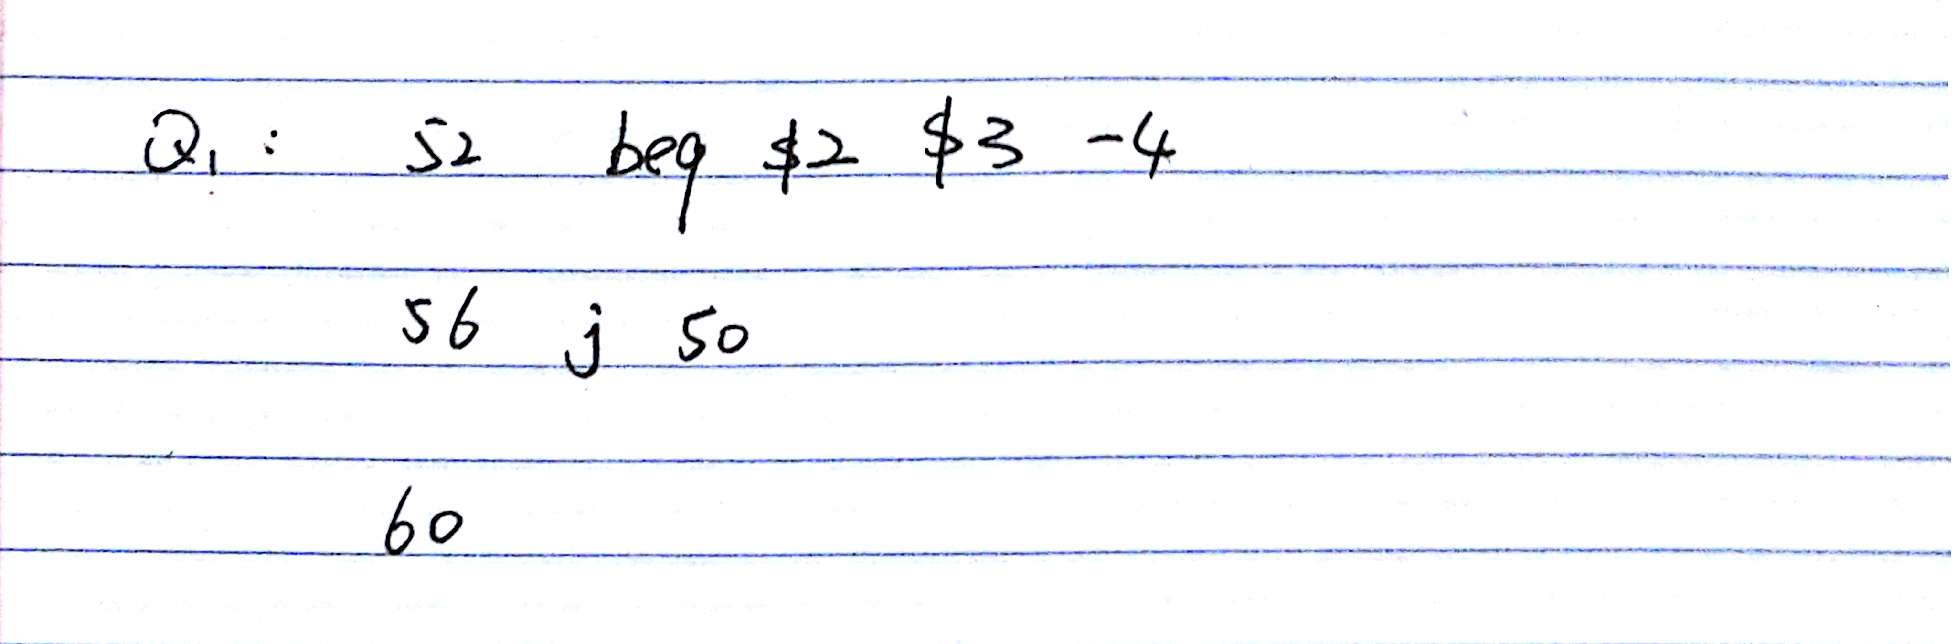 Q1: 52 beq $2 $3 -4
56 j 50
60